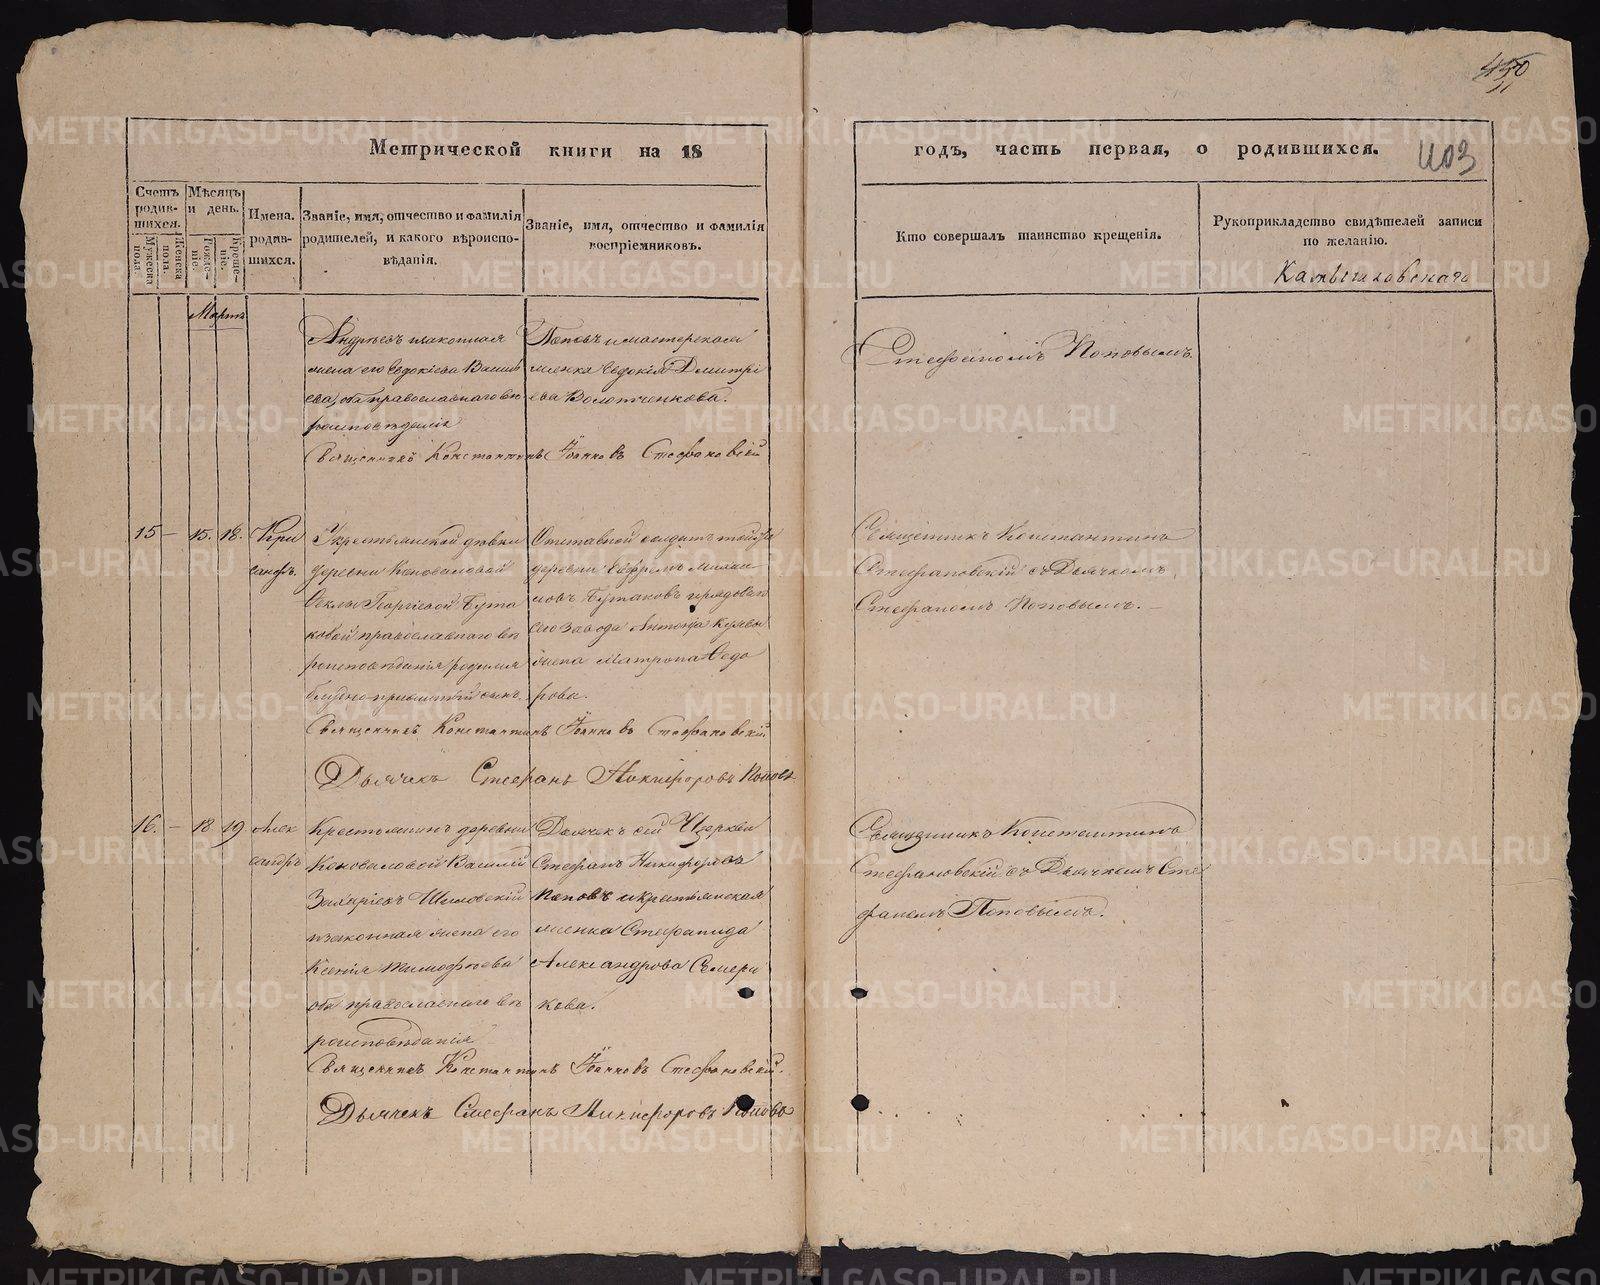 450
Метрической книги на 18
годъ, часть первая, о родившихся.
403
Счетъ родив-шихся.
Мужеска пола.
Женска пола.
Мѣсяцъ и день.
Рожде-ніе.
Креще-ніе.
Имена родив-шихся.
Званіе, имя, отчество и фамилія
родителей, и какого вѣроиспо-
вѣданія.
Званіе, имя, отчество и фамилія
воспріемниковъ.
Кто совершалъ таинство крещенія.
Рукоприкладство свидѣтелей записи
по желанію.
Камышловскаго
Мартъ
Андреевъ и законная
жена его Евдокіева Василь
ева, оба православнаго вѣ
роисповѣданія
Поповъ и мастерская
женка Евдокія Дмитрі
ева Золотченкова.
Стефаномъ Поповымъ
Священникъ Константинъ Іоанновъ Стефановскій
15 — 15. 18.
Хри
санфъ.
У крестьянской дѣвки
деревни Коноваловой
Феклы Георгіевой Бута
ковой православнаго вѣ
роисповѣданія родился
блудно прижитый сынъ.
Отставной солдатъ той же
деревни Ефремъ Михаи
ловъ Бутаковъ и рядоваго
сего завода Антона
жена Матрона Ѳедо
рова.
Священникъ Константинъ
Стефановскій съ Дьячкомъ
Стефаномъ Поповымъ. —
Священникъ Константинъ Іоанновъ Стефановскій
Дьячекъ Стефанъ Никифоровъ Поповъ
16. — 18 19
Алек
сандръ
Крестьянинъ деревни
Коноваловой Василій
Захаріевъ Шиловскій
и законная жена его
Ксенія Тимофѣева
оба православнаго вѣ
роисповѣданія
Дьячекъ сей Церкви
Стефанъ Никифоровъ
Поповъ и крестьянская
женка Стефанида
Александрова Семери
кова.
Священникъ Константинъ
Стефановскій съ Дьячкомъ Сте
фаномъ Поповымъ.
Священникъ Константинъ Іоанновъ Стефановскій.
Дьячекъ Стефанъ Никифоровъ Поповъ
METRIKI.GASO-URAL.RU